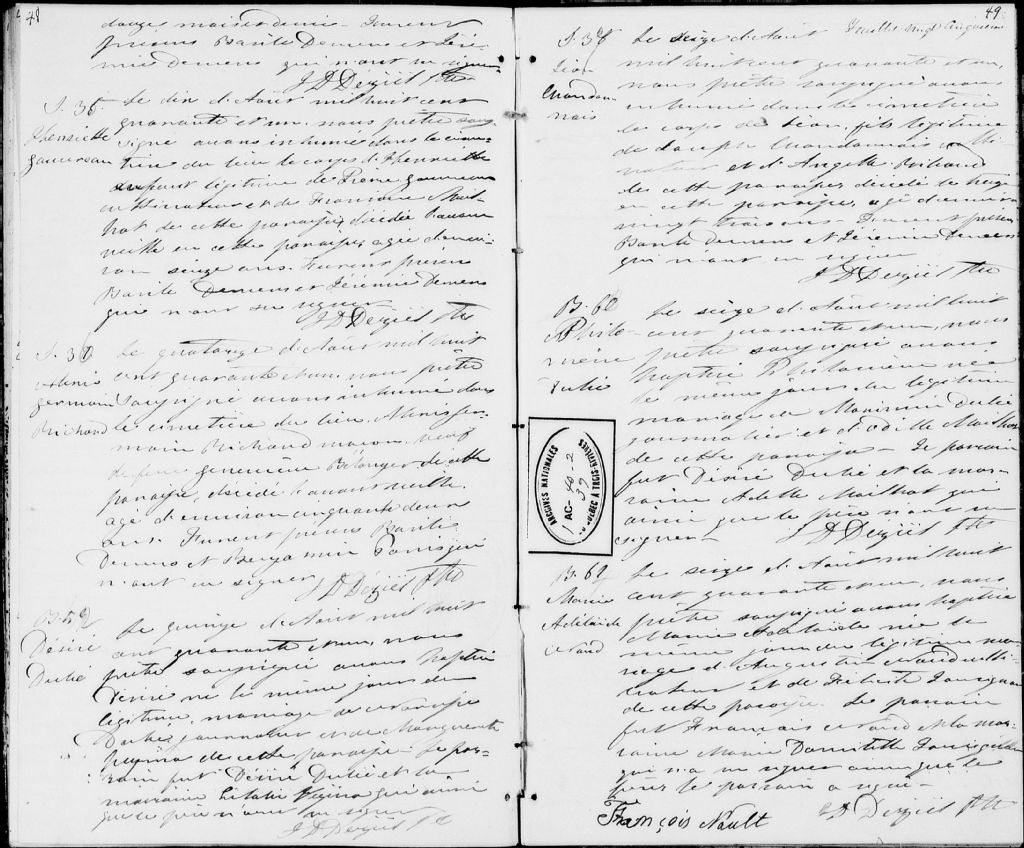 48
douze mois et demi - Furent
présens Basile Demers et Jéré-
mie Demers qui n'ont su signer
J D Deziel Ptre
S. 35
Henriette
Gauvreau
Le dix d'Août mil huit cent
quarante et un, nous prêtre sous-
signé avons inhumé dans le cime-
tière du lieu le corps d'Henriette
enfant légitime de Pierre Gauvreau
cultivateur et de Françoise Mail-
hot de cette paroisse, décédée l'avant
veille en cette paroisse, agée d'envi-
ron seize ans. Furent présens
Basile Demers et Jérémie Demers
qui n'ont su signer
J D Deziel Ptre
S. 36
germain
Richard
Le quatorze d'Août mil huit
cent quarante et un, nous prêtre
soussigné avons inhumé dans
le cimetière du lieu, ger-
main Richard maçon, veuf
de feue genevieve Bélanger de cette
paroisse, décédé l'avant veille,
agé d'environ cinquante deux
ans. Furent présens Basile
Demers et Benjamin
n'ont su signer
J D Deziel Ptre
B. 59
Désiré
Dubé
Le quinze d'Août mil huit
cent quarante et un, nous
prêtre soussigné avons baptisé
Désiré né le même jour du
légitime mariage de
Dubé journalier et de Marguerite
de cette paroisse. Le par-
rain fut Désiré Dubé et la
marraine qui ainsi
que le père n'ont su signer
J D Deziel Ptre
49
Feuille vingt cinquième
S. 37
Léon
Chandon-
nais
Le seize d'Août
mil huit cent quarante et un,
nous prêtre soussigné avons
inhumé dans le cimetière
le corps de Léon, fils légitime
de Joseph Chandonnais culti-
vateur et d'Angelle
de cette paroisse, décédé le treize
en cette paroisse, agé d'environ
vingt trois ans - Furent présens
Basile Demers et Jérémie Demers
qui n'ont su signer
J D Deziel Ptre
B. 60
Philo-
mène
Dubé
Le seize d'Août mil huit
cent quarante et un, nous
prêtre soussigné avons
baptisé Philomène née
le même jour du légitime
mariage de Maximin Dubé
journalier et d'Odille Mailhot
de cette paroisse - Le parrain
fut Désiré Dubé et la mar-
raine Adelle Mailhot qui
ainsi que le père n'ont su
signer
J D Deziel Ptre
ARCHIVES NATIONALES
AC-40-2
39
DU QUÉBEC À TROIS-RIVIÈRES
B. 61
Marie
Adélaïde
Le seize d'Août mil huit
cent quarante et un, nous
prêtre soussigné avons baptisé
Marie Adélaïde née le
même jour du légitime ma-
riage d'Augustin culti-
vateur et de
de cette paroisse. Le parrain
fut François et la mar-
raine Marie
qui n'a su signer ainsi que le
père le parrain a signé -
François Nault
J D Deziel Ptre